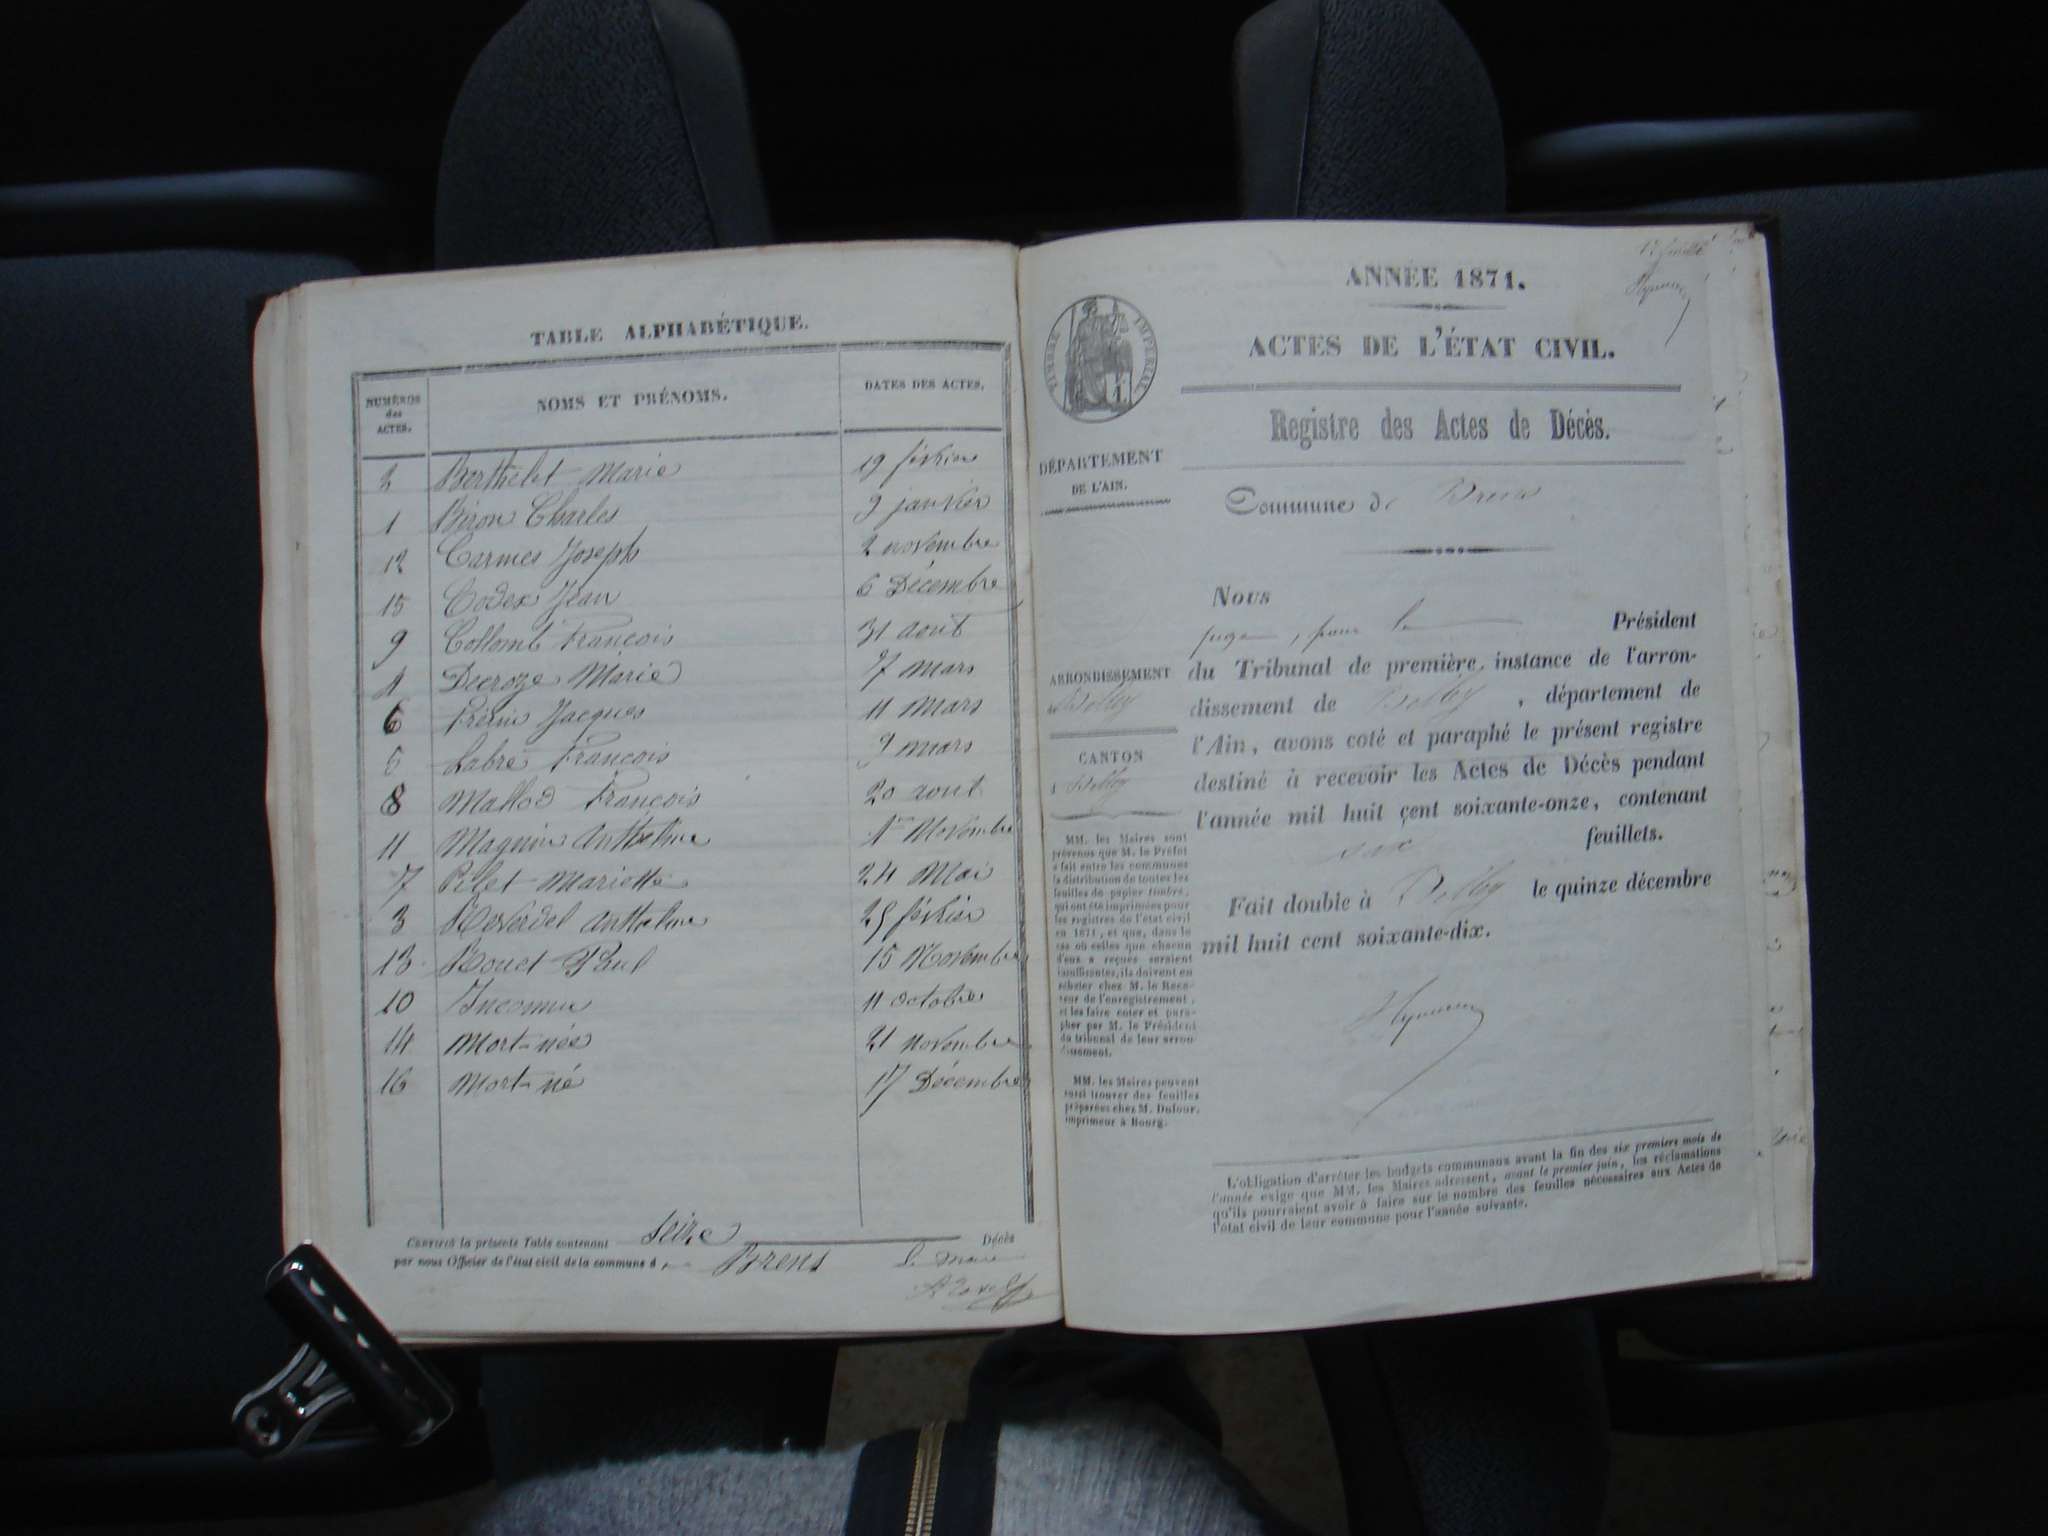 TABLE ALPHABÉTIQUE.
NUMÉROS des ACTES. NOMS ET PRÉNOMS. DATES DES ACTES.
2 Berthelet Marie 19 février
1 Biron Charles 9 janvier
12 Carmes Joseph 2 novembre
15 Codex Jean 6 Décembre
9 Collomb François 31 aout
4 Decroze Marie 7 mars
6 Frédin Jacques 11 Mars
5 Labre François 9 mars
8 Mallod François 20 aout
11 Magnin Anthelme 1er Novembre
7 Pilet Mariette 24 Mai
3 Reverdel Anthelme 25 février
13 Rouet Paul 15 Novembre
10 Inconnu 11 octobre
14 Mort-née 21 novembre
16 Mort-né 17 Décembre
CERTIFIÉ la présente Table contenant seize Décès
par nous Officier de l'état civil de la commune d Brens le Maire
ANNÉE 1871.
ACTES DE L'ÉTAT CIVIL.
TIMBRE IMPÉRIAL
Registre des Actes de Décès.
DÉPARTEMENT
DE L'AIN.
Commune de Brens
Nous
juge, pour le Président
du Tribunal de première instance de l'arron-
dissement de Belley, département de
l'Ain, avons coté et paraphé le présent registre
destiné à recevoir les Actes de Décès pendant
l'année mil huit cent soixante-onze, contenant
six feuillets.
Fait double à Belley le quinze décembre
mil huit cent soixante-dix.
ARRONDISSEMENT
de Belley
CANTON
d Belley
MM. les Maires sont
prévenus que M. le Préfet
a fait entre les communes
la distribution de toutes les
feuilles de papier timbre,
qui ont été imprimées pour
les registres de l'état civil
en 1871, et que, dans le
cas où celles que chacun
d'eux a reçues seraient
insuffisantes, ils doivent en
acheter chez M. le Rece-
veur de l'enregistrement,
et les faire coter et para-
pher par M. le Président
du tribunal de leur arron-
dissement.
MM. les Maires peuvent
aussi trouver des feuilles
préparées chez M. Dufour,
imprimeur à Bourg.
L'obligation d'arrêter les budgets communaux avant la fin des six premiers mois de
l'année exige que MM. les Maires adressent, avant le premier juin, les réclamations
qu'ils pourraient avoir à faire sur le nombre des feuilles nécessaires aux Actes de
l'état civil de leur commune pour l'année suivante.